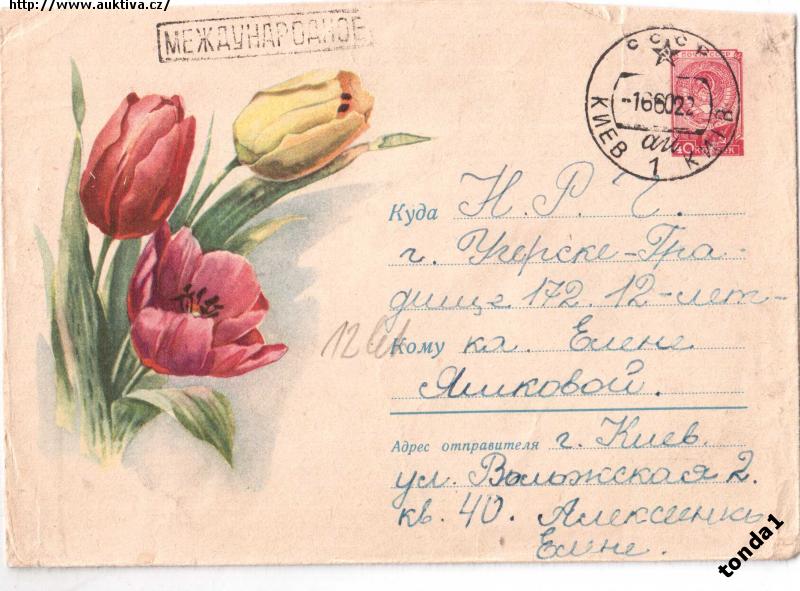 http://www.auktiva.cz/
МЕЖДУНАРОДНОЕ
СССР
ПОЧТА СССР
-166022
КИЕВ 1 КИЇВ
40 КОПЕЕК
Куда Н. Р. Ч.
г. Угерске-Гра-
дище 172. 12-лет-
12 let
Кому ка Елене
Яшковой.
Адрес отправителя г. Киев.
ул. Воложская 2.
кв. 40. Алексеенко
Елене.
tonda1